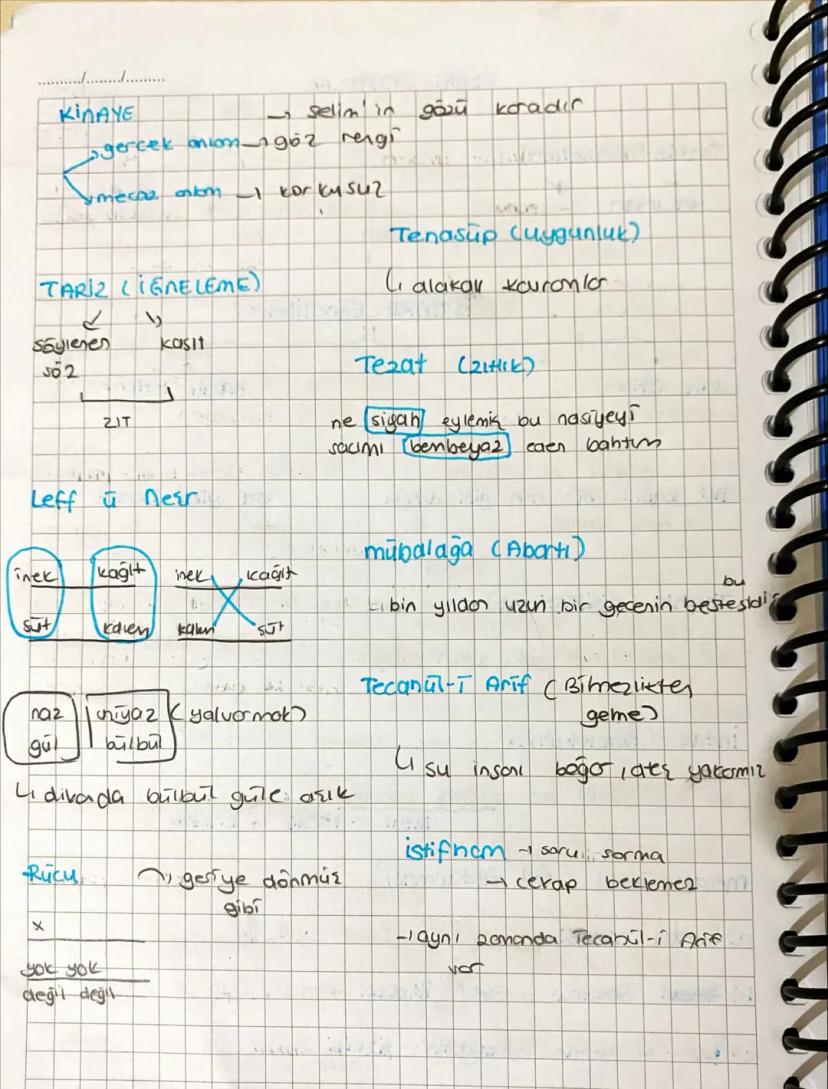 ....../......../.........
KİNAYE → selim'in gözü karadır
gerçek anlam → göz rengi
mecaz anlam → korkusuz
TARİZ (İĞNELEME)
söylenen kasıt
söz
ZIT
Leff ü Neşr
inek kağıt inek kağıt
süt kalem kalem süt
naz niyaz (yalvarmak)
gül bülbül
↳ divanda bülbül güle aşık
Rücu → geriye dönmüş
gibi
x
yok yok
değil değil
Tenasüp (uygunluk)
↳ alakalı kavramlar
Tezat (zıtlık)
ne siyah eylemiş bu nasiyeyi
saçımı bembeyaz eden bahtım
mübalağa (Abartı)
bu
↳ bin yıldan uzun bir gecenin bestesidir
Tecahül-i Arif (Bilmezlikten
geme)
↳ su insanı boğar, ateş yakarmış
istifham → soru sorma
→ cevap beklemez
→ aynı zamanda Tecahül-i Arif
var